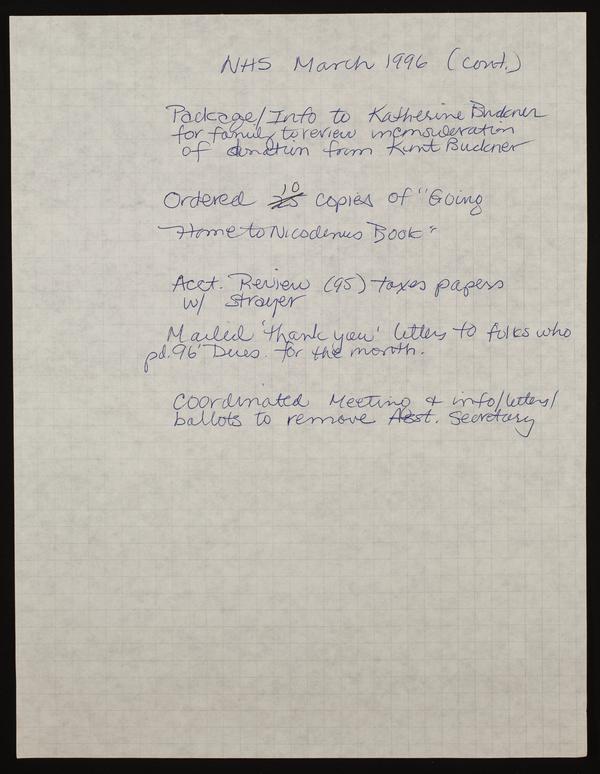 NHS March 1996 (cont.)
Package/Info to Katherine Buckner
for family to review in consideration
of donation from Kurt Buckner
10
Ordered 25 copies of "Going
Home to Nicodemus Book"
Acct. Review (95) taxes papers
w/ Strayer
Mailed 'thank you' letters to folks who
pd. 96' Dues. for the month.
Coordinated Meeting & info/letters/
ballots to remove Asst. Secretary